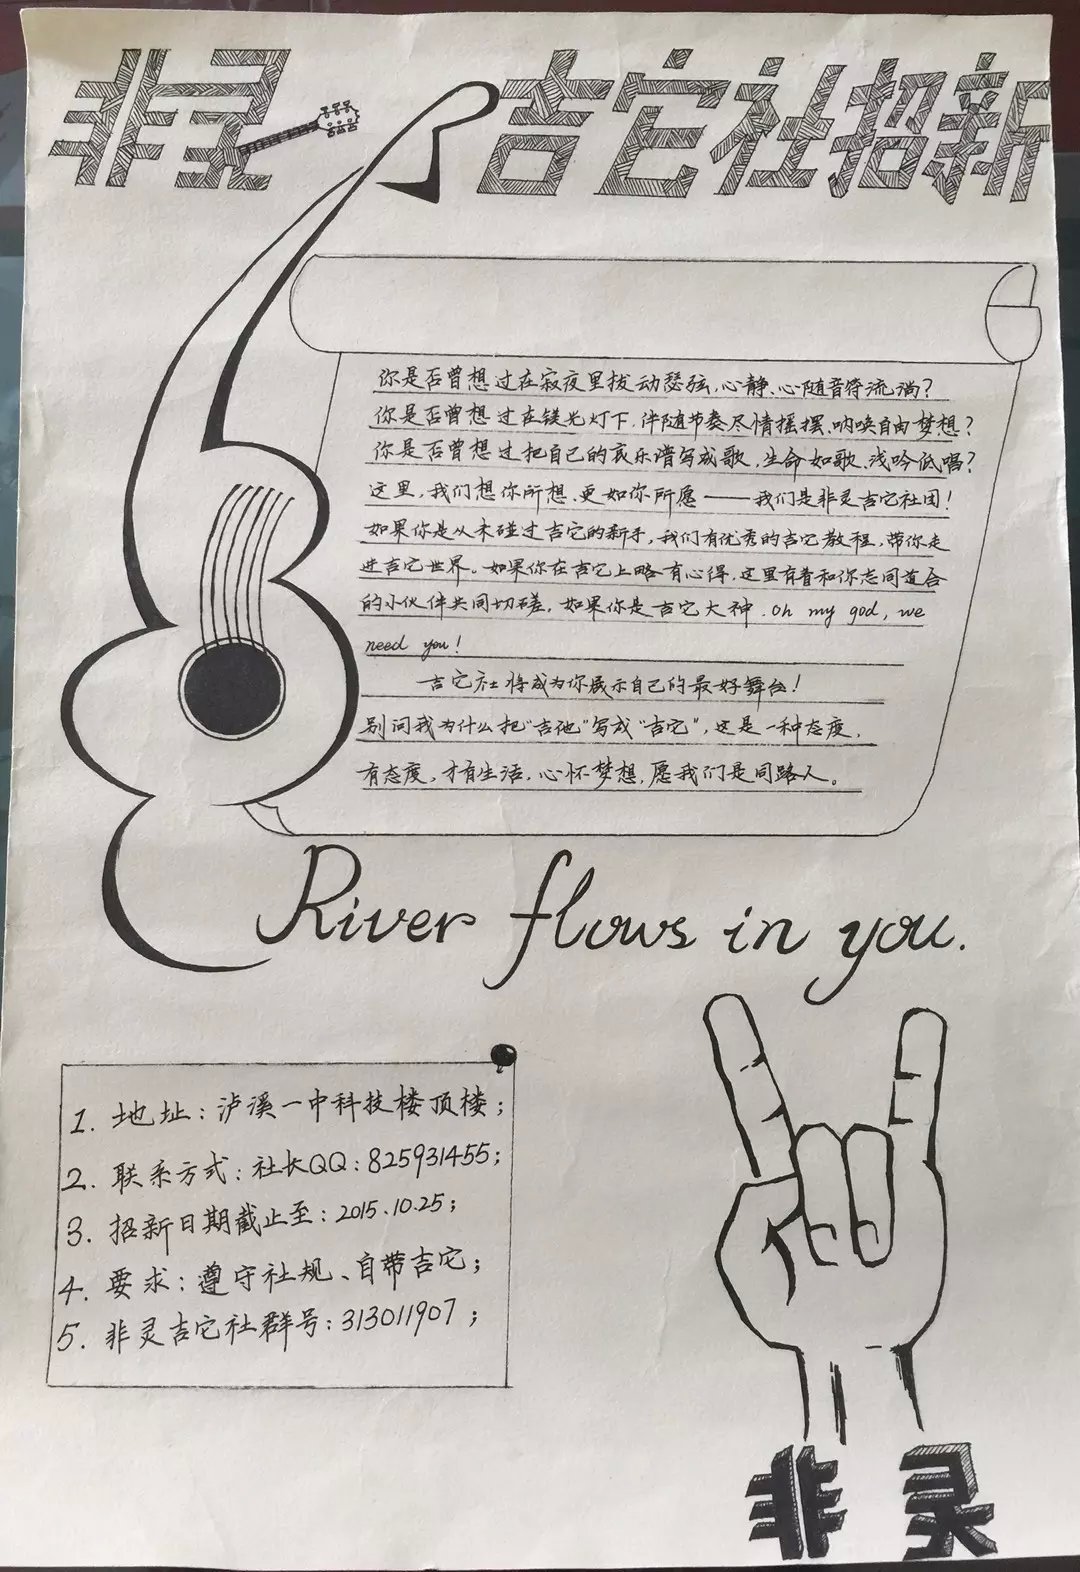 非灵吉它社招新
你是否曾想过在寂夜里拨动瑟弦,心静、心随音符流淌?
你是否曾想过在镁光灯下,伴随节奏尽情摇摆、呐喊自由梦想?
你是否曾想过把自己的哀乐谱写成歌,生命如歌、浅吟低唱?
这里,我们想你所想、更如你所愿——我们是非灵吉它社团!
如果你是从未碰过吉它的新手,我们有优秀的吉它教程,带你走
进吉它世界。如果你在吉它上略有心得,这里有着和你志同道合
的小伙伴共同切磋,如果你是吉它大神.oh my god, we
need you!
吉它社将成为你展示自己的最好舞台!
别问我为什么把“吉他”写成“吉它”,这是一种态度,
有态度,才有生活,心怀梦想,愿我们是同路人。
River flows in you.
1. 地址:泸溪一中科技楼顶楼;
2. 联系方式:社长QQ:825931455;
3. 招新日期截止至:2015.10.25;
4. 要求:遵守社规、自带吉它;
5. 非灵吉它社群号:313011907;
非灵